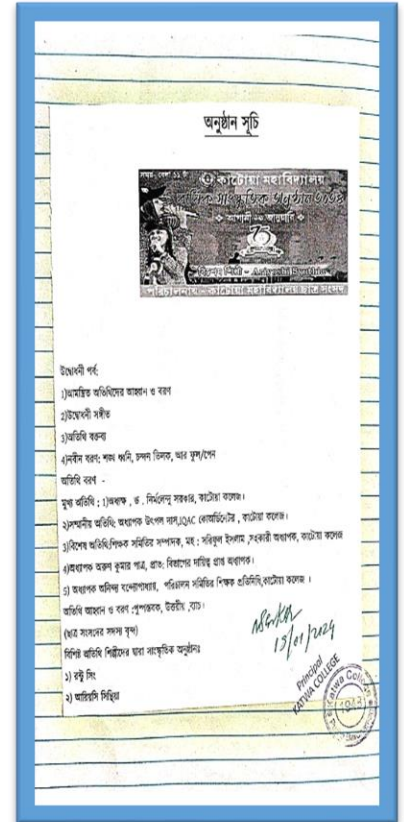 অনুষ্ঠান সূচি
সময়- বেলা ১১ টা
কাটোয়া মহাবিদ্যালয়
বার্ষিক সাংস্কৃতিক অনুষ্ঠান
আগামী জানুয়ারি
বিশেষ শিল্পী -
পরিচালনায় - কাটোয়া মহাবিদ্যালয় ছাত্র সংসদ
উদ্বোধনী পর্ব:
1)আমন্ত্রিত অতিথিদের আহ্বান ও বরণ
2)উদ্বোধনী সঙ্গীত
3)অতিথি বক্তব্য
4)নবীন বরণ: শঙ্খ ধ্বনি, চন্দন তিলক, আর ফুল/পেন
অতিথি বরণ -
মুখ্য অতিথি ; 1)অধ্যক্ষ , ড . নির্মলেন্দু সরকার, কাটোয়া কলেজ।
২)সম্মানীয় অতিথি: অধ্যাপক উৎপল দাস,IQAC কোঅর্ডিনেটর , কাটোয়া কলেজ।
3)বিশেষ অতিথি:শিক্ষক সমিতির সম্পাদক, মহ : সরিফুল ইসলাম ,সহকারী অধ্যাপক, কাটোয়া কলেজ
4)অধ্যাপক অরুন কুমার পাত্র, প্রাত: বিভাগের দায়িত্ব প্রাপ্ত অধ্যাপক।
5) অধ্যাপক অনিন্দ্য বন্দ্যোপাধ্যায়, পরিচালন সমিতির শিক্ষক প্রতিনিধি,কাটোয়া কলেজ ।
অতিথি আহ্বান ও বরণ :পুষ্পস্তবক, উত্তরীয় ,ব্যাচ।
(ছাত্র সংসদের সদস্য বৃন্দ)
বিশিষ্ট অতিথি শিল্পীদের দ্বারা সাংস্কৃতিক অনুষ্ঠানঃ
১) রন্টু সিং
২) আরিয়সি সিন্থিয়া
15/01/2024
Principal
KATWA COLLEGE
Katwa College
1948